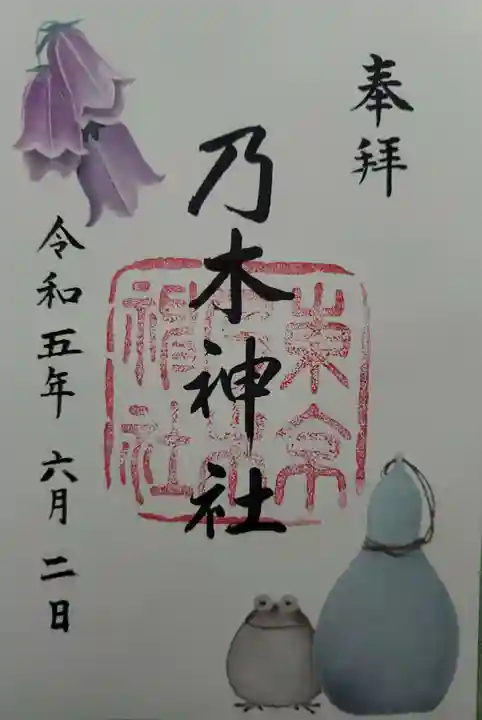 奉拝
乃木神社
東京乃木神社
令和五年 六月 二日